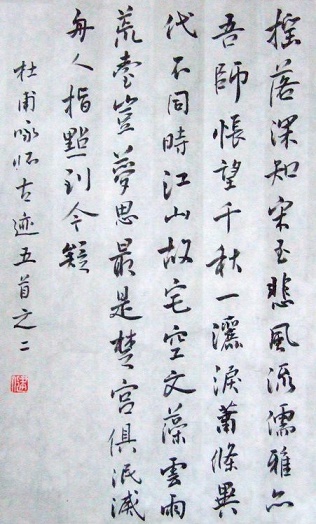 摇落深知宋玉悲風流儒雅亦
吾師悵望千秋一灑淚蕭條異
代不同時江山故宅空文藻雲雨
荒臺豈夢思最是楚宮俱泯滅
舟人指點到今疑
杜甫咏怀古迹五首之二